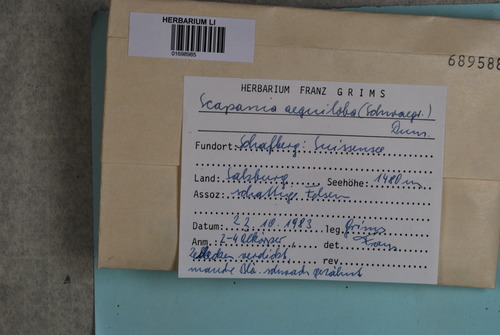 HERBARIUM LI
01698965
689588
HERBARIUM FRANZ GRIMS
Scapania aequiloba (Schwaegr.)
Dum.
Fundort: Schafberg: Suissensee
Land: Salzburg Seehöhe: 1480 m
Assoz: schattige Felsen
Datum: 22.10.1983 leg. Grims
Anm. 2-4 Ölkörper, det. Franz
verdickt, rev.
manche Bla. schwach gezähnt